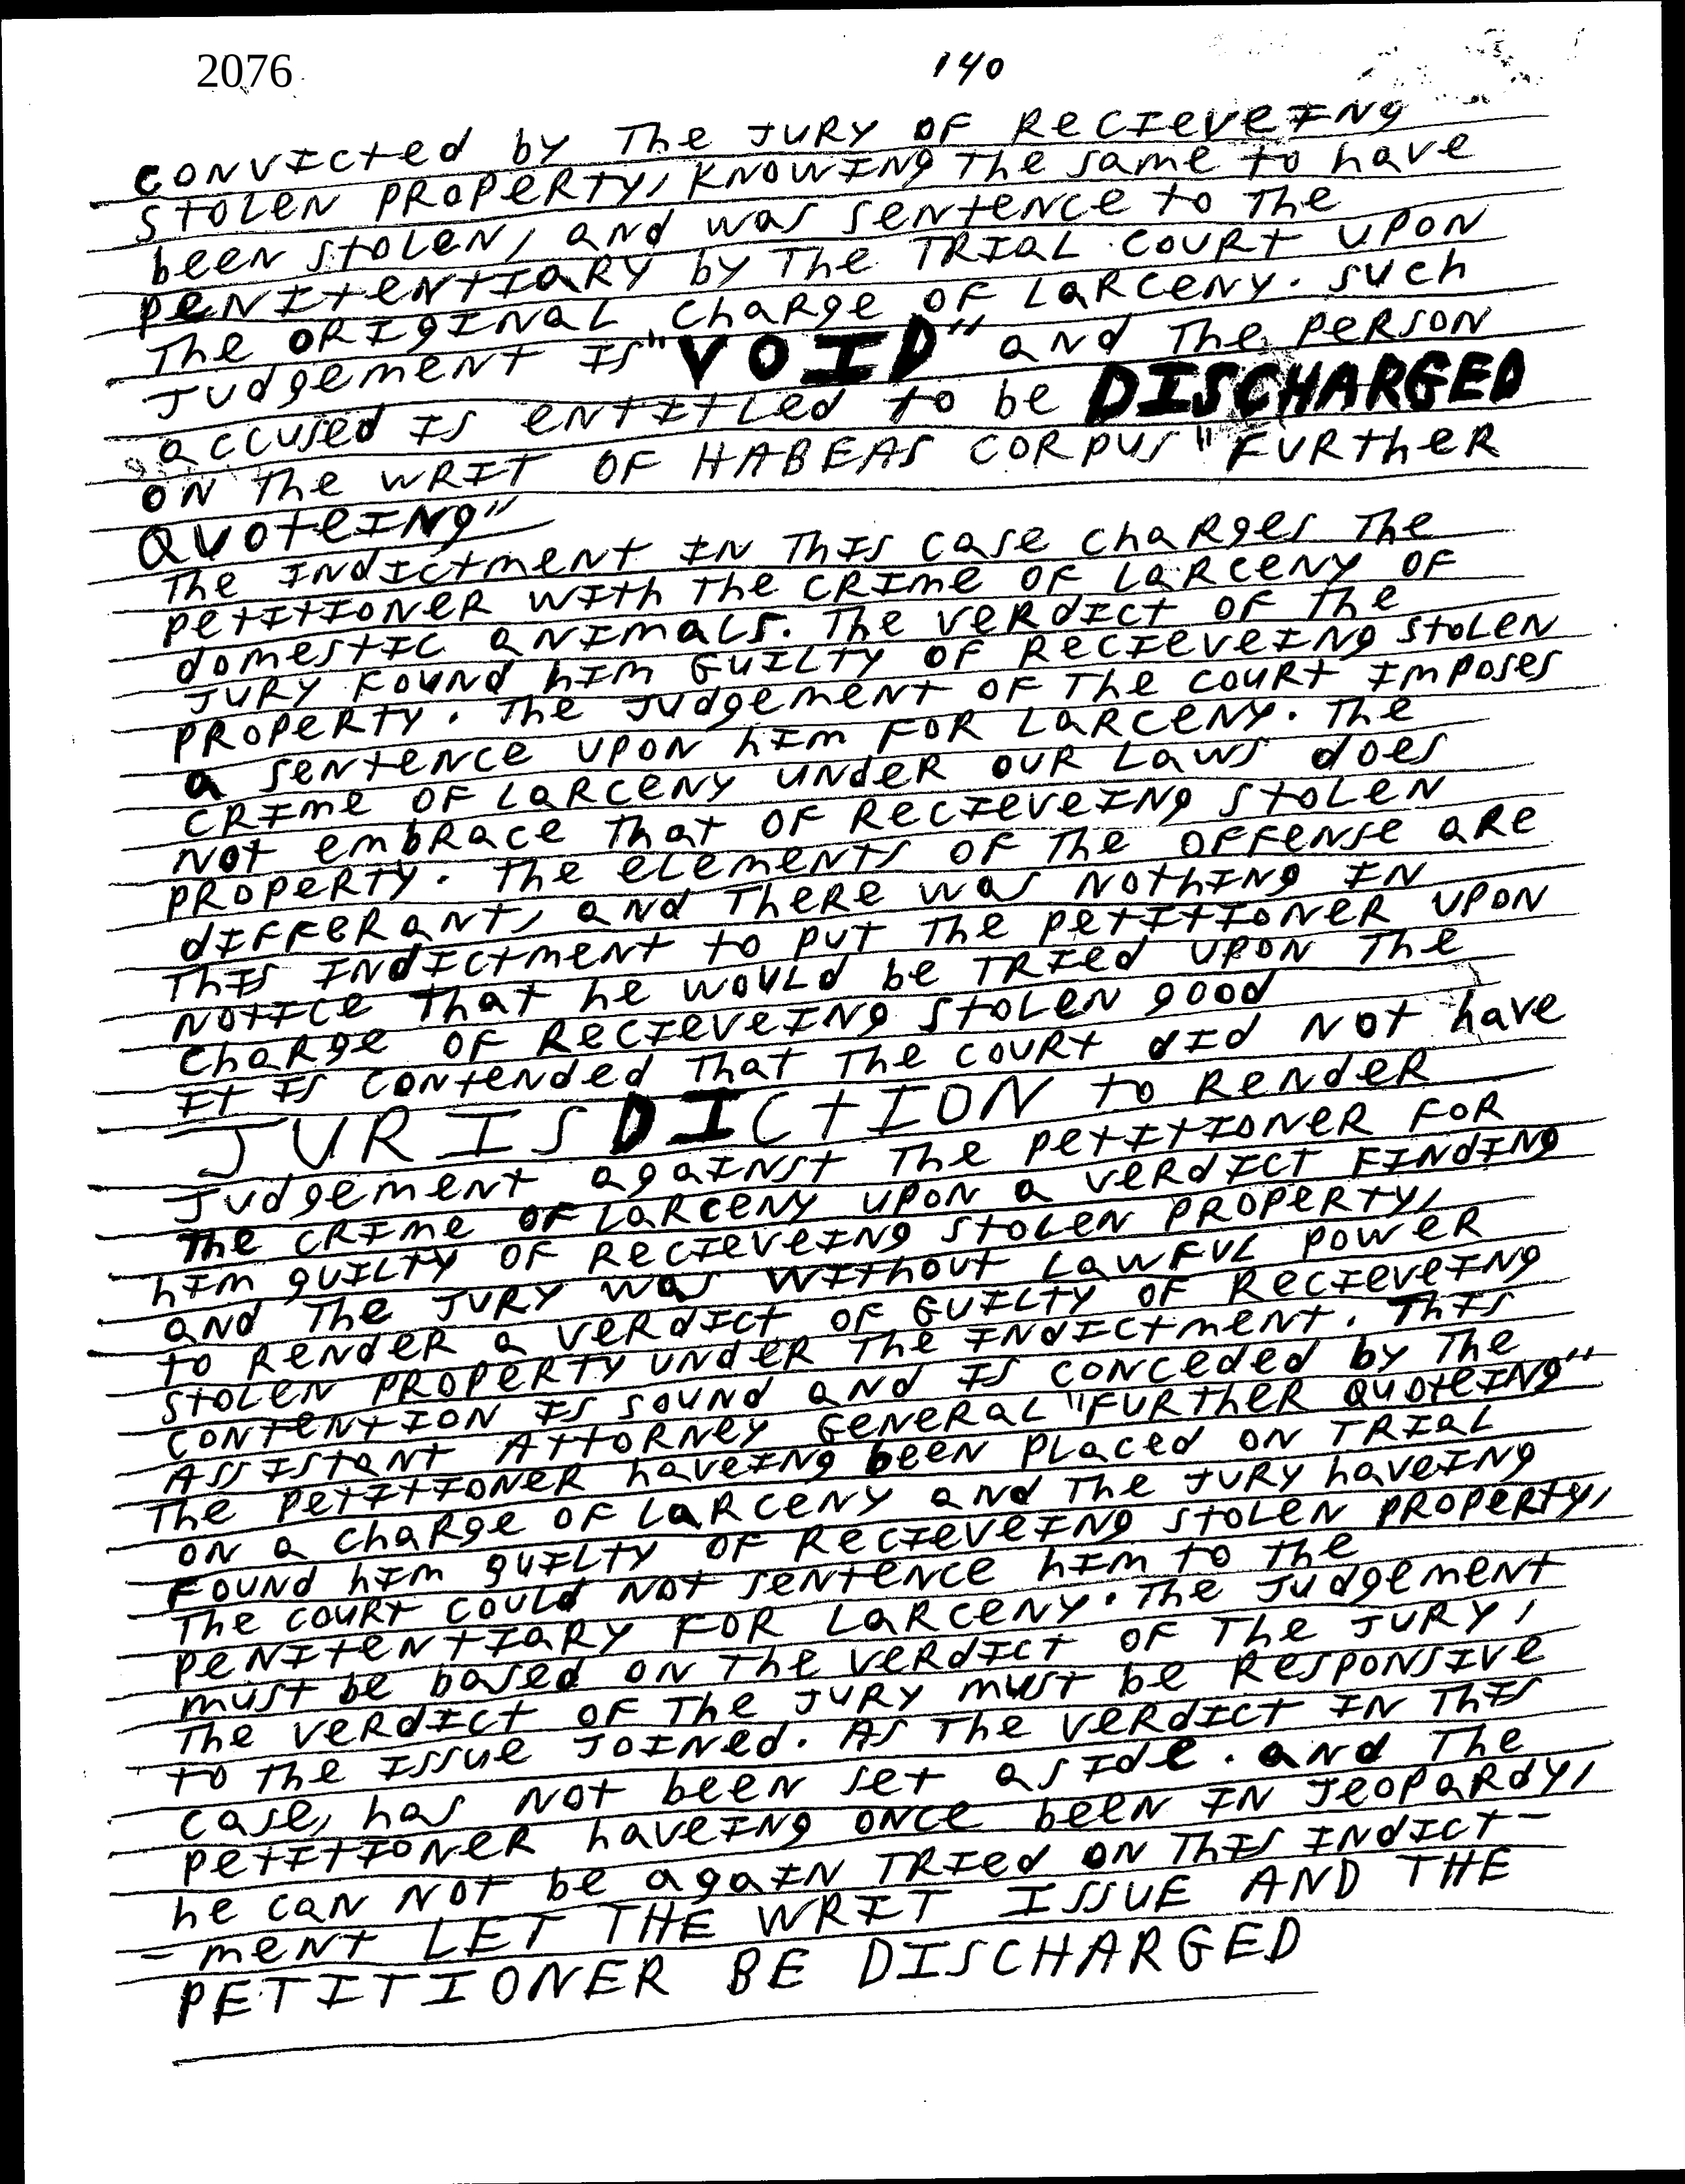 2076 140
convicted by The JURY OF RecIeveING
StOLEN PROPERTY, KNOWING The same to have
been StOLEN, and was SENtENCE to The
PENItENtIARY by The TRIAL COURt UPON
The ORIGINAL ChaRge OF LARCENY. Such
Judgement Is "VOID" and The PERSON
accused Is ENtItLed to be DISCHARGED
ON The WRIT OF HABEAS CORPUS "FURtheR
QUOteING"
The INdIctmeNt IN ThIs case chaRges The
PetItIONER WIth The CRIme OF LARCENY OF
domestIc aNImaLs. The VeRdIct OF The
JURY FOUNd hIm GUILTY OF RecIeveING StOLEN
PROPeRTY. The Judgement OF The couRt ImPoses
a SeNteNce UPON hIm FOR LARCENY. The
CRIme OF LARCENY UNdeR OUR Laws does
Not embRace That OF RecIeveING StOLEN
PROPeRTY. The eLemeNts OF The OFFeNse aRe
dIFFeRaNt, and TheRe was NothING IN
ThIs INdIctmeNt to put The PetItIONeR UPON
NotIce That he WOULd be TRIed UPON The
ChaRge OF RecIeveING StOLEN good
It Is CONteNded That The couRt dId Not have
JURISDICtION to ReNdeR
Judgement agaINst The PetItIONeR FOR
The CRIme OF LARCENY UPON a VeRdIct FINdING
hIm guILTY OF RecIeveING StOLEN PROPeRTY,
aNd The JURY was WIthout LawFUL POWeR
to ReNdeR a VeRdIct OF GUILTY OF RecIeveING
StOLEN PROPeRTY UNdeR The INdIctmeNt. ThIs
CONteNtION Is souNd aNd Is CONceded by The
AssIstaNt AttORNey GeNeRaL "FURtheR QUOteING"
The PetItIONeR haveING beeN PLaced ON TRIaL
ON a chaRge OF LARCENY aNd The JURY haveING
FOUNd hIm guILTY OF RecIeveING StOLEN PROPeRty,
The couRt couLd Not seNteNce hIm to The
PeNIteNtIaRY FOR LaRceNY. The Judgement
must be based ON The VeRdIct OF The JURY,
The VeRdIct OF The JURY must be ResPONsIve
to The Issue JOINed. As The VeRdIct IN ThIs
case, has Not beeN set asIde. aNd The
PetItIONeR haveING ONce beeN IN JeoPaRdy,
he caN Not be agaIN TRIed ON ThIs INdIct-
- meNt LET THE WRIT ISSUE AND THE
PETITIONER BE DISCHARGED